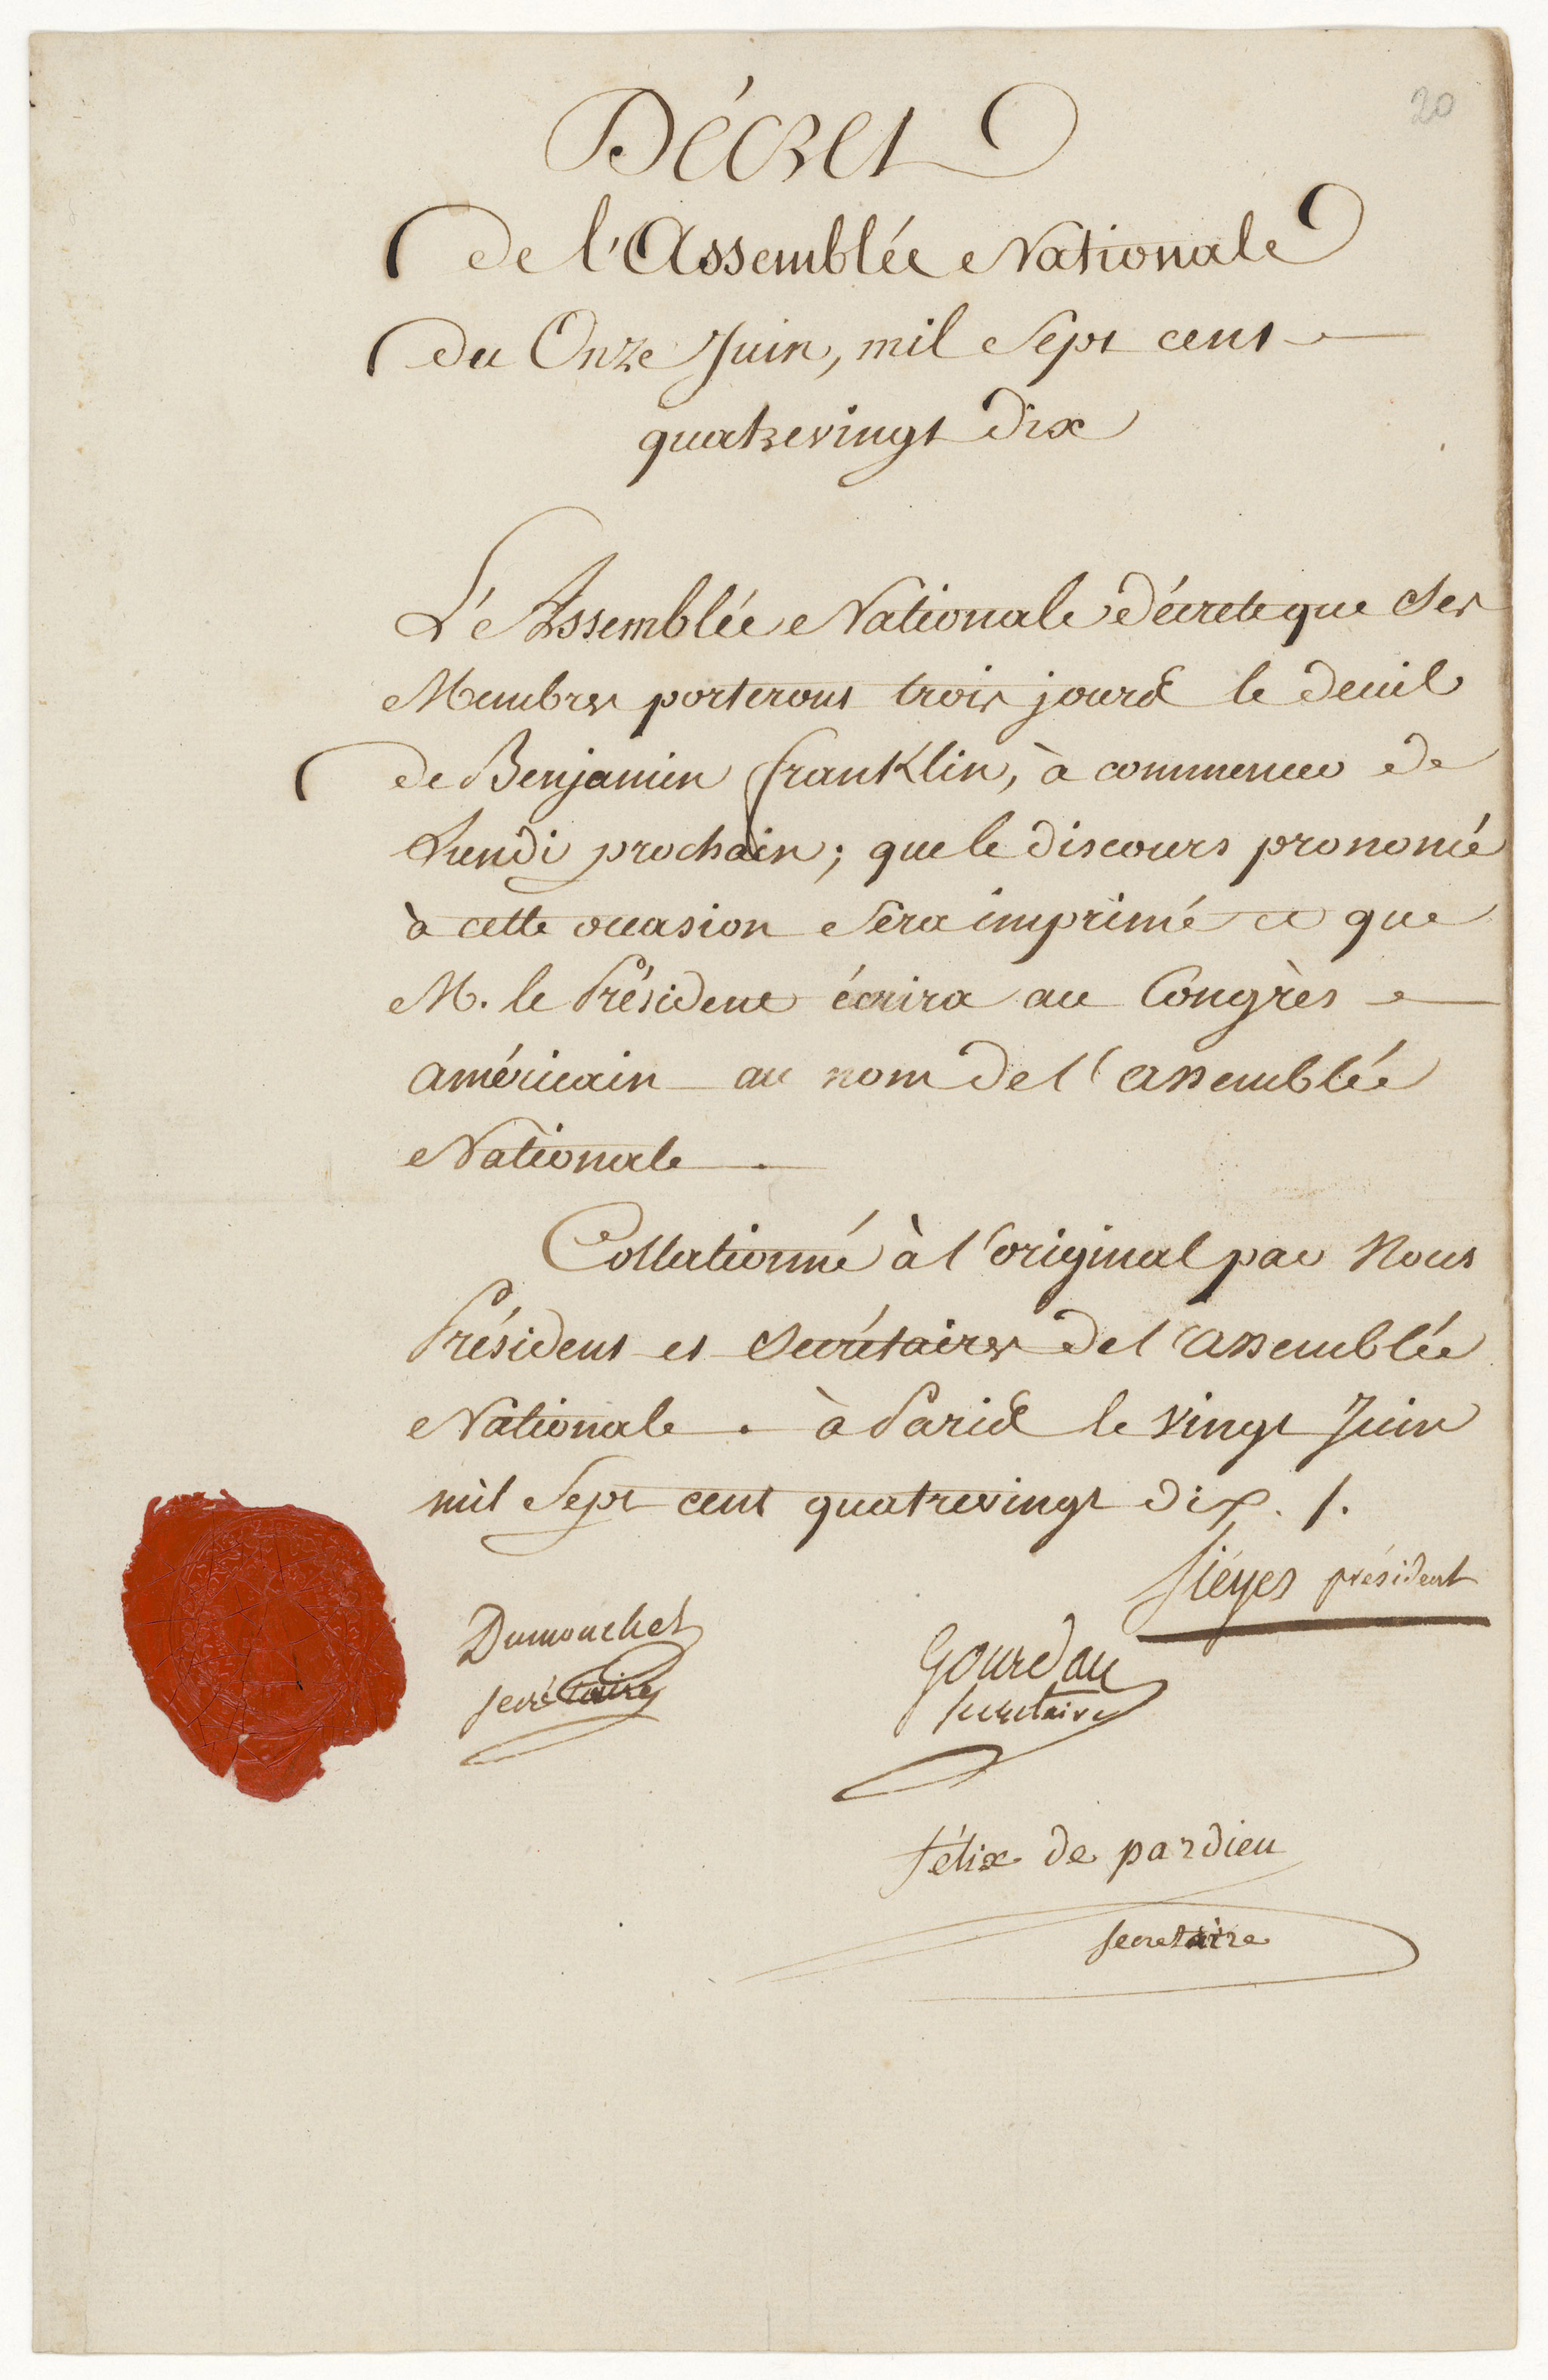 20
Décret
de l'Assemblée Nationale
du Onze Juin, mil Sept cent
quatrevingt dix
L'Assemblée Nationale décrete que Ses
Membres porteront trois jours le deuil
de Benjamin franklin, à commencer de
Lundi prochain; que le discours prononcé
à cette occasion Sera imprimé et que
M. le Président écrira au Congrès
américain au nom de l'assemblée
Nationale.
Collationné à l'original par Nous
Président et Secrétaires de l'assemblée
Nationale. à Paris le vingt Juin
mil Sept cent quatrevingt dix. /.
Sieyes président
Dumouchet
secrétaire
Gourdan
secretaire
félix de pardieu
secretaire